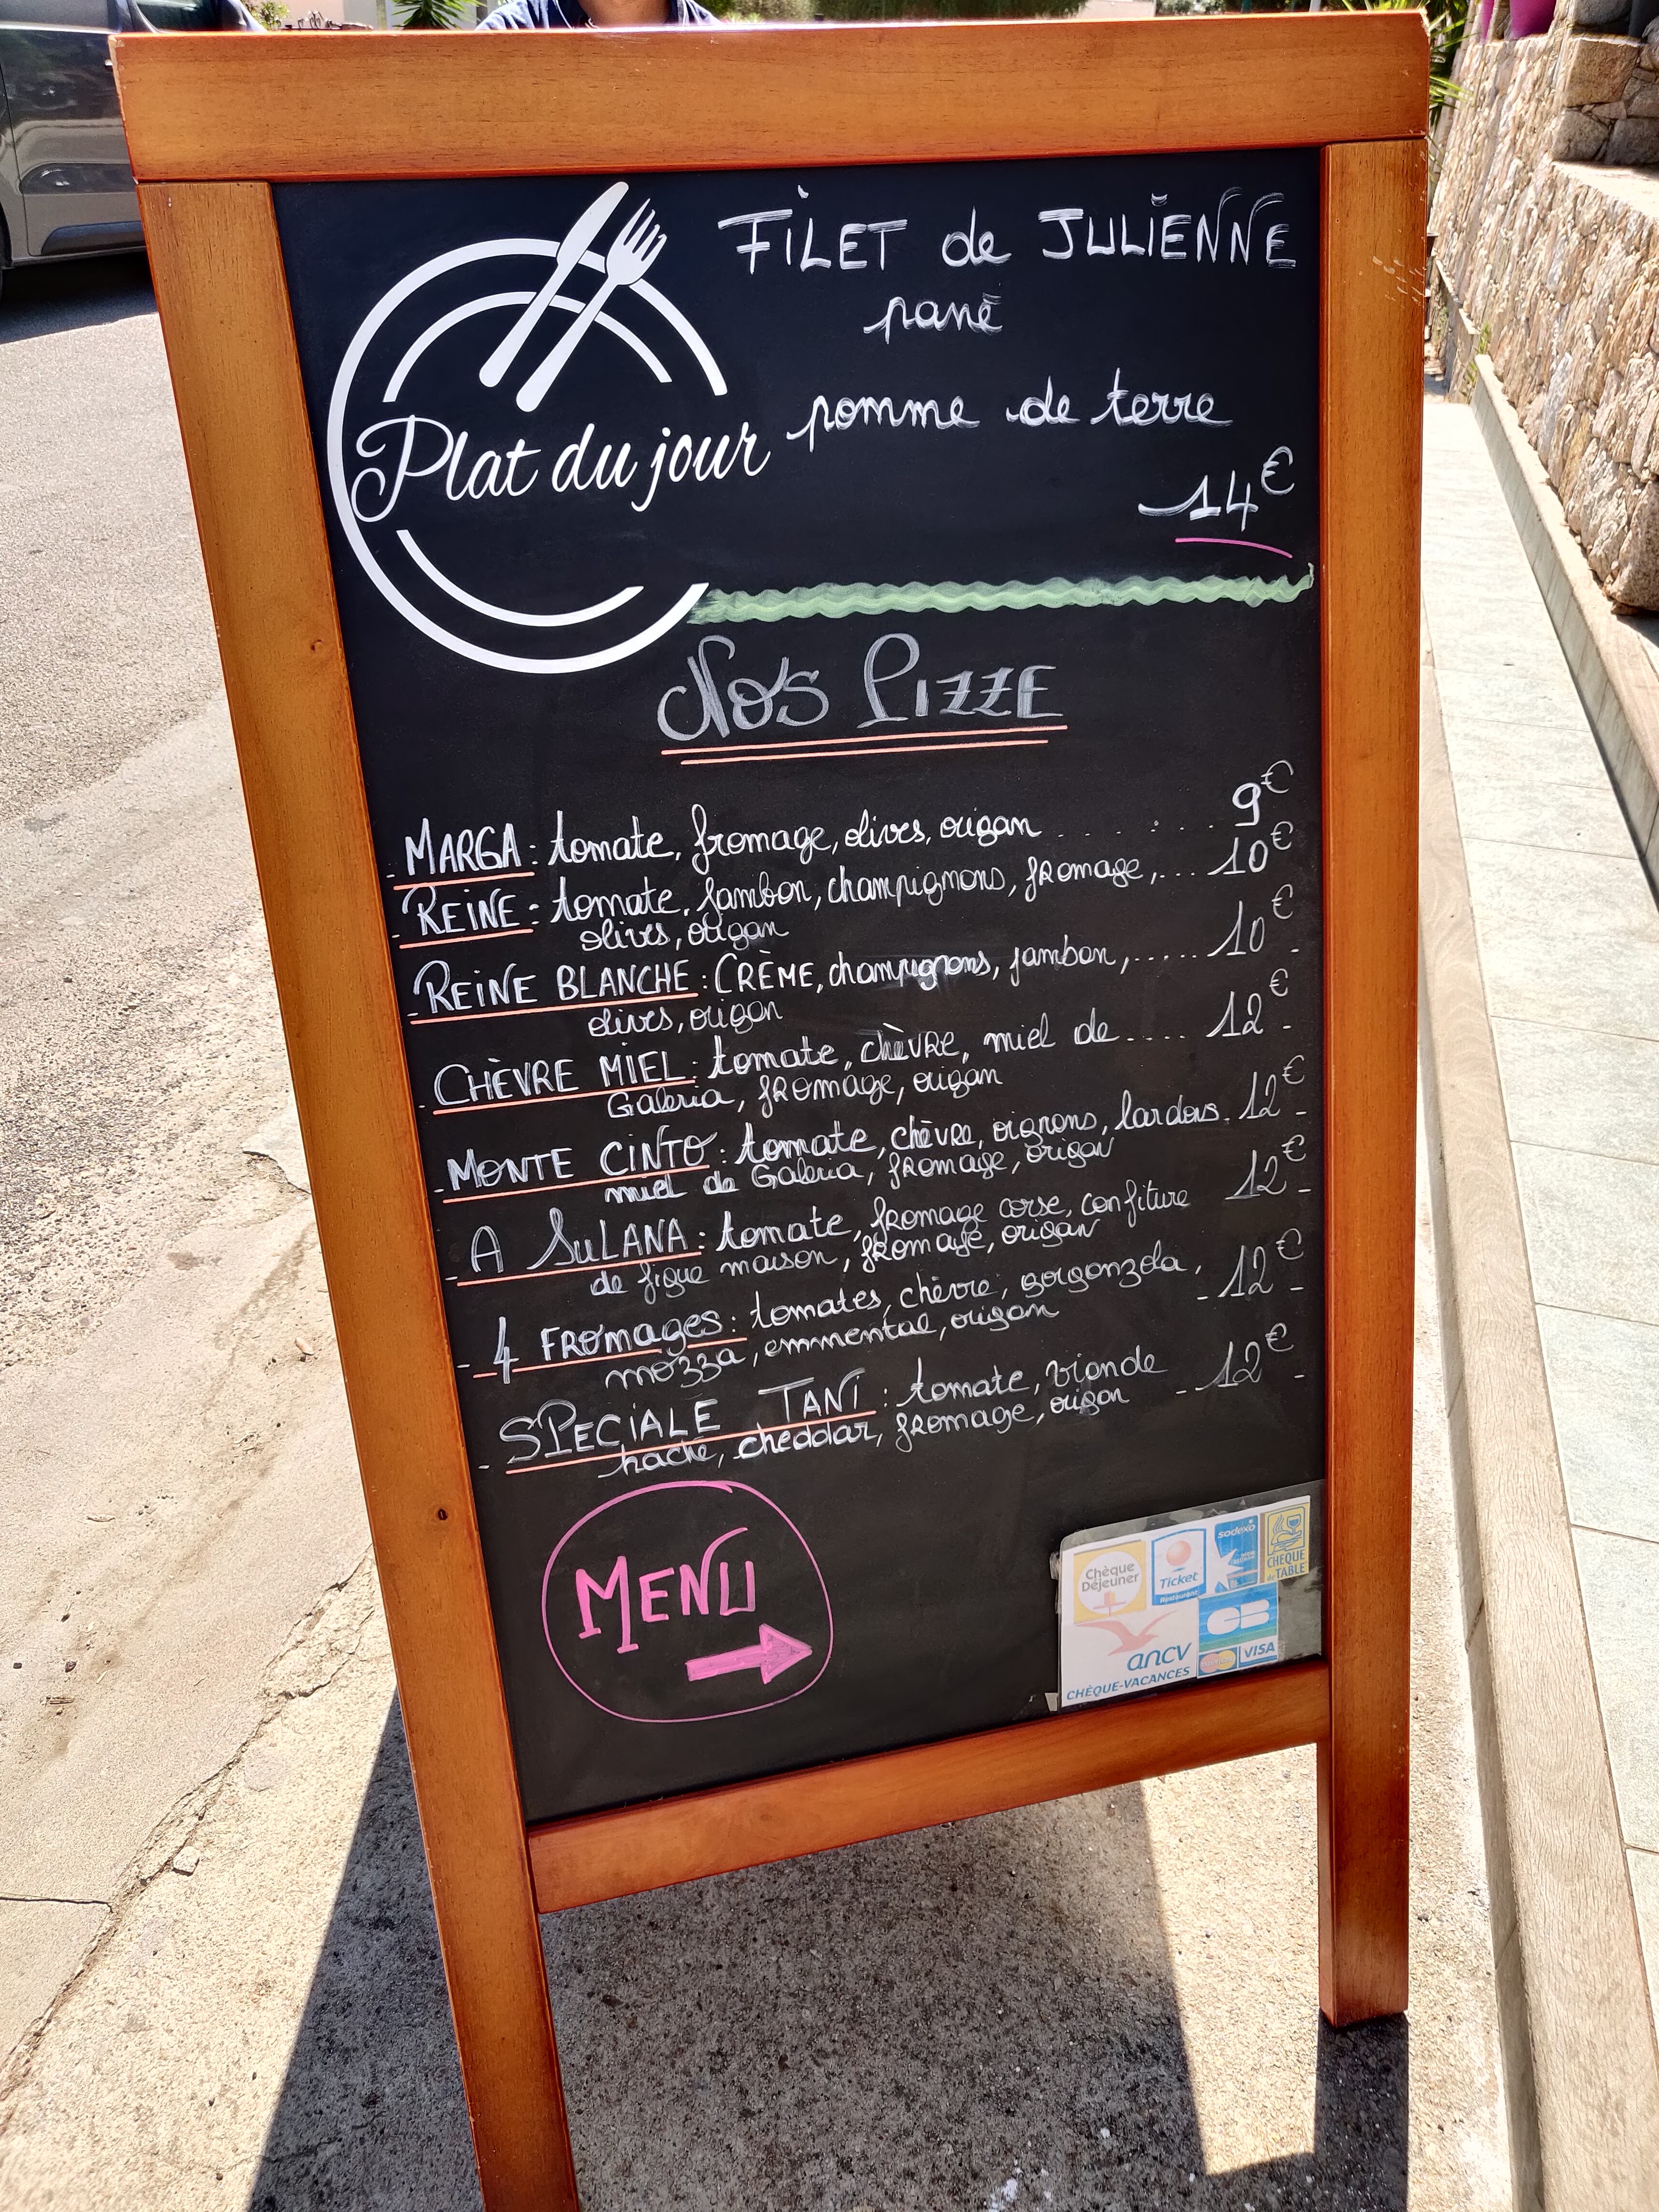 FILET de JULIENNE
pané
Plat du jour
pomme de terre
14€
Nos PIZZE
- MARGA : tomate, fromage, olives, origan . . . . . . . 9€
- REINE : tomate, jambon, champignons, fromage, ... 10€
olives, origan
- REINE BLANCHE : CRÈME, champignons, jambon, ..... 10€ -
olives, origan
- CHÈVRE MIEL : tomate, chèvre, miel de .... 12€ -
Galeria, fromage, origan
- MONTE CINTO : tomate, chèvre, oignons, lardons. 12€ -
miel de Galeria, fromage, origan
- A SULANA : tomate, fromage corse, confiture 12€ -
de figue maison, fromage, origan
- 4 FROMAGES : tomates, chèvre, gorgonzola, - 12€ -
mozza, emmental, origan
- SPECIALE TANI : tomate, viande - 12€ -
haché, cheddar, fromage, origan
MENU
Chèque
Déjeuner
Ticket
Restaurant
sodexo
CHEQUE
de TABLE
ancv
CHÈQUE-VACANCES
CB
VISA